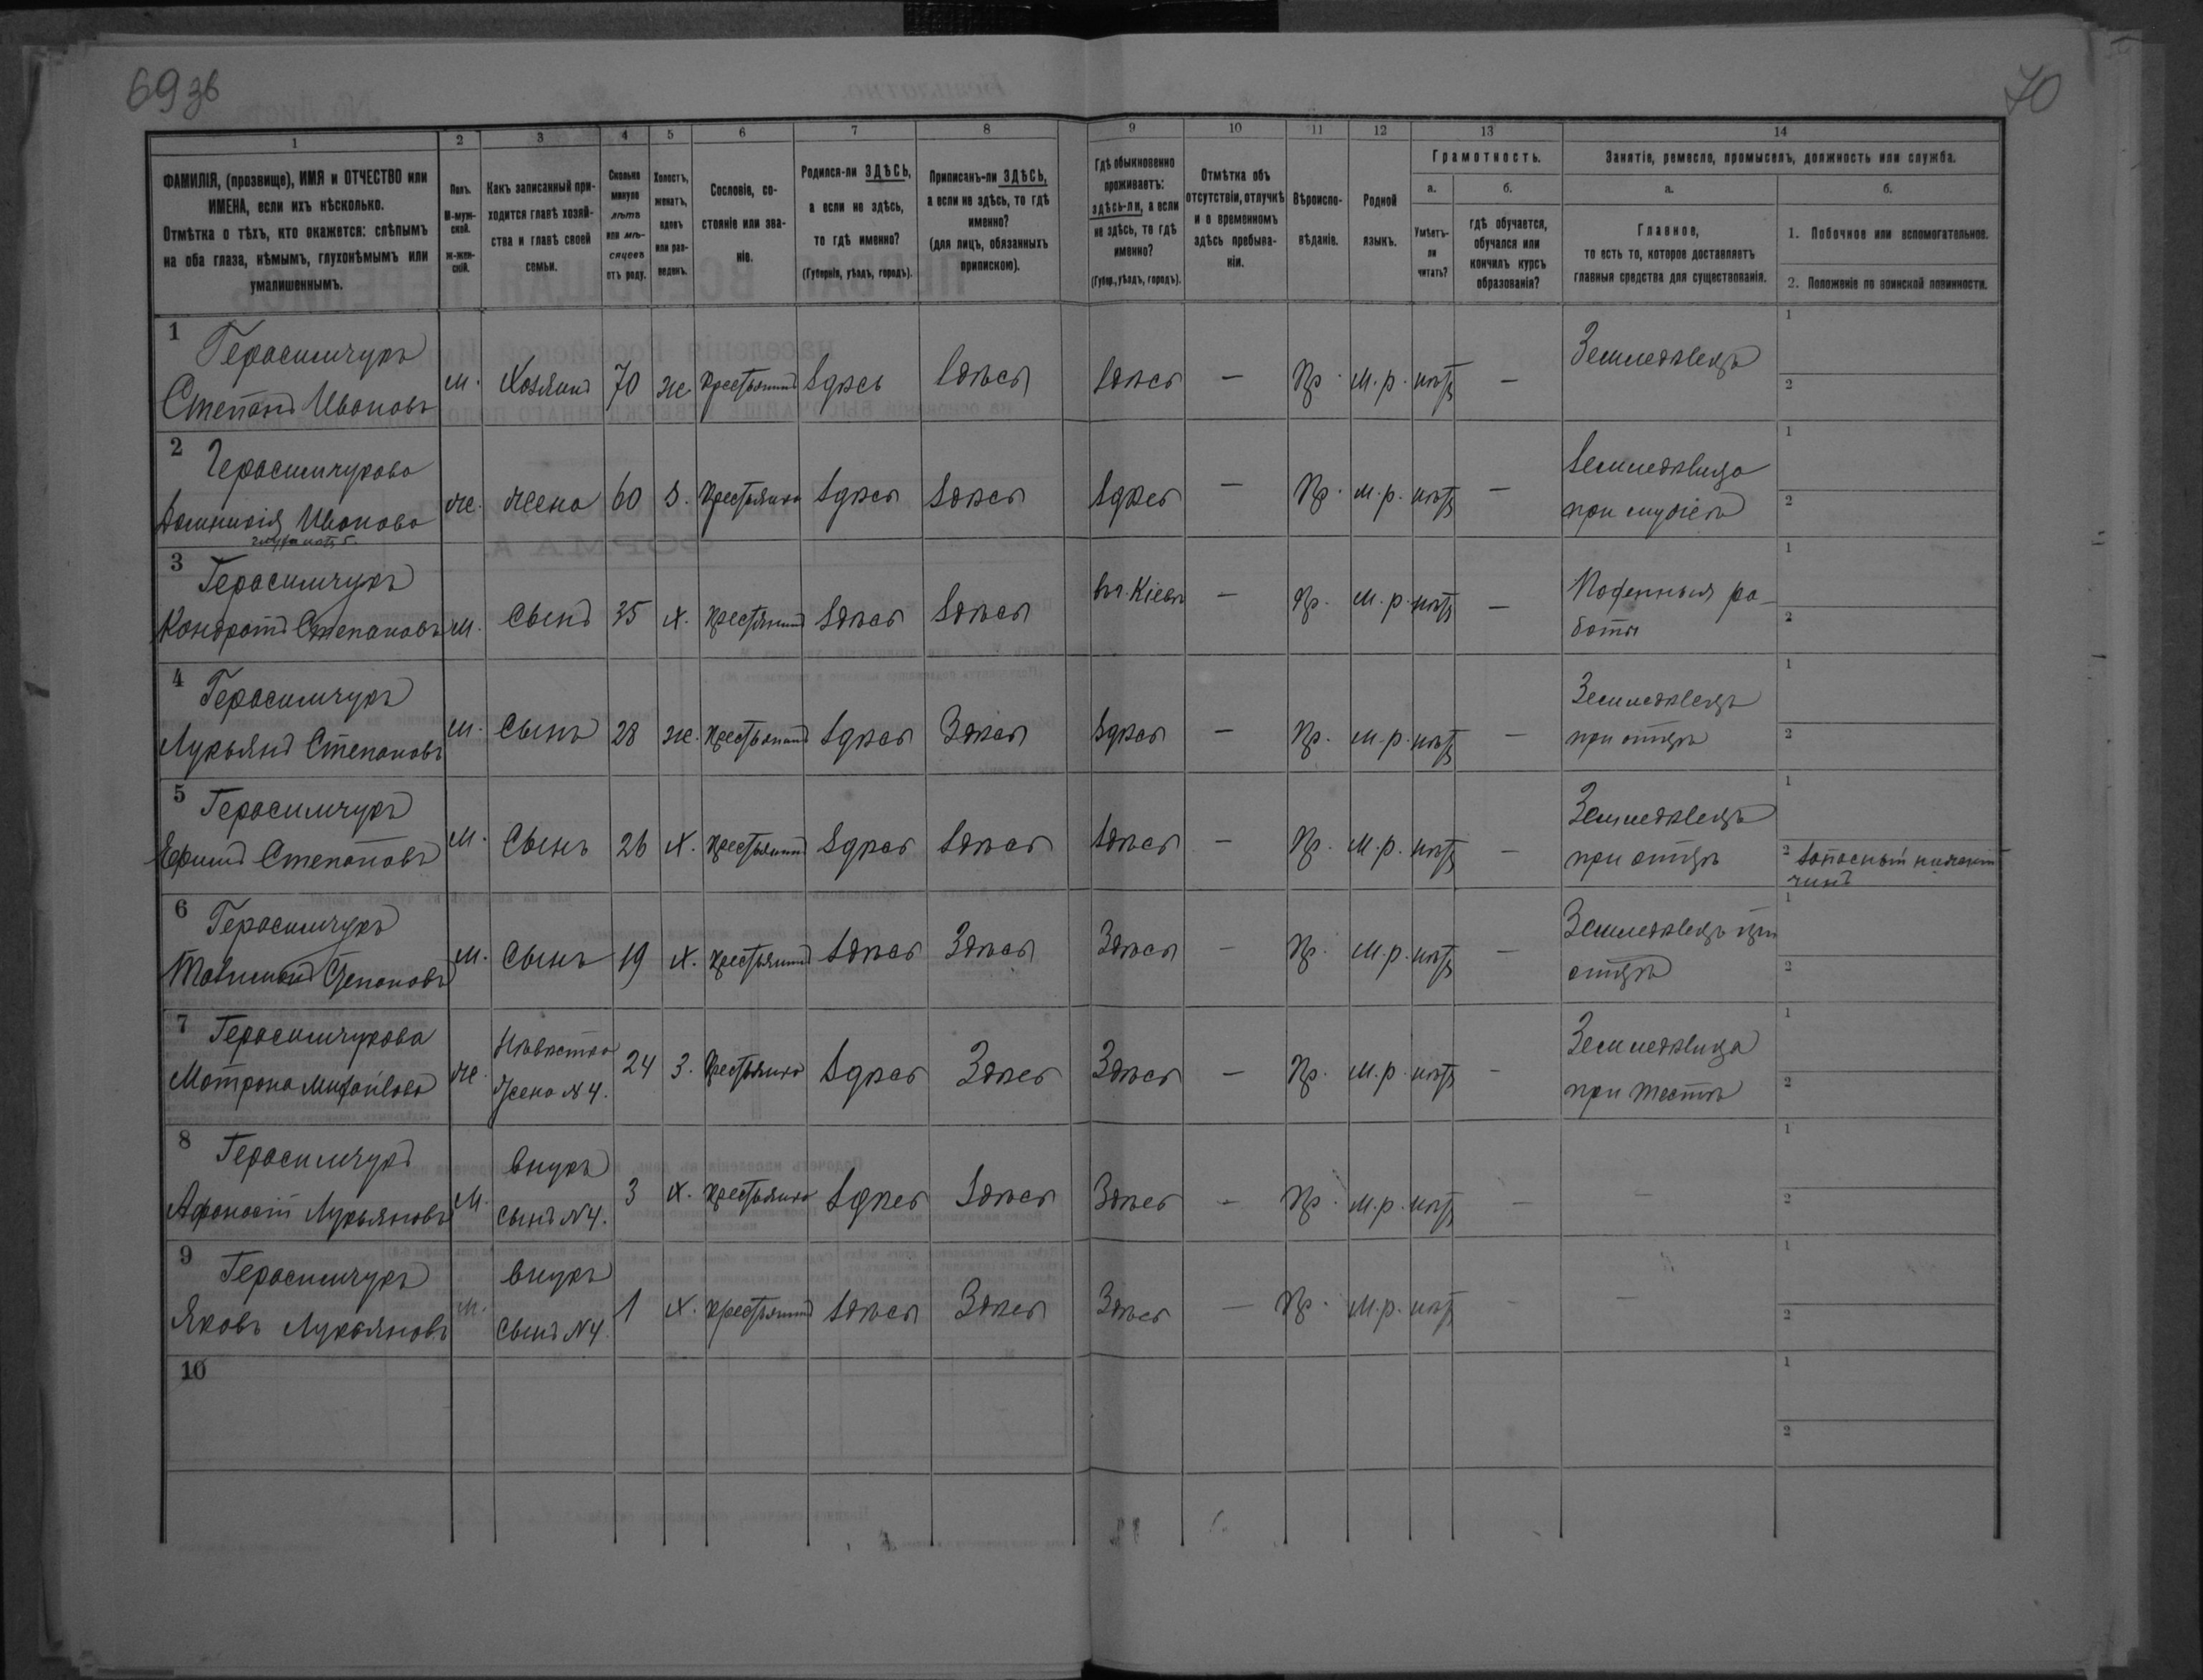 69 зв
70
1
2
3
4
5
6
7
8
9
10
11
12
13
14
ФАМИЛІЯ, (прозвище), ИМЯ и ОТЧЕСТВО или
ИМЕНА, если ихъ нѣсколько.
Отмѣтка о тѣхъ, кто окажется: слѣпымъ
на оба глаза, нѣмымъ, глухонѣмымъ или
умалишеннымъ.
Полъ.
М-муж-
ской.
ж-жен-
скій.
Какъ записанный при-
ходится главѣ хозяй-
ства и главѣ своей
семьи.
Сколько
минуло
лѣтъ
или мѣ-
сяцевъ
отъ роду.
Холостъ,
женатъ,
вдовъ
или раз-
веденъ.
Сословіе, со-
стояніе или зва-
ніе.
Родился-ли ЗДѢСЬ,
а если не здѣсь,
то гдѣ именно?
(Губернія, уѣздъ, городъ).
Приписанъ-ли ЗДѢСЬ,
а если не здѣсь, то гдѣ
именно?
(для лицъ, обязанныхъ
припискою).
Гдѣ обыкновенно
проживаетъ:
здѣсь-ли, а если
не здѣсь, то гдѣ
именно?
(Губер., уѣздъ, городъ).
Отмѣтка объ
отсутствіи, отлучкѣ
и о временномъ
здѣсь пребыва-
ніи.
Вѣроиспо-
вѣданіе.
Родной
языкъ.
Грамотность.
а.
Умѣетъ-
ли
читать?
б.
гдѣ обучается,
обучался или
кончилъ курсъ
образованія?
Занятіе, ремесло, промыселъ, должность или служба.
а.
Главное,
то есть то, которое доставляетъ
главныя средства для существованія.
б.
1. Побочное или вспомогательное.
2. Положеніе по воинской повинности.
1 Герасимчукъ
Степанъ Ивановъ
м. Хозяинъ 70 же Крестьянинъ Здѣсь Здѣсь Здѣсь — Пр. м.р. нѣтъ —
Земледѣлецъ
1
2
2 Герасимчукова
Ивонова
же. жена 60 З. Крестьянка Здѣсь Здѣсь Здѣсь — Пр. м.р. нѣтъ —
Земледѣлица
при мужѣ
1
2
3 Герасимчукъ
Кондратъ Степановъ
м. Сынъ 35 х. Крестьянинъ Здѣсь Здѣсь въ г. Кіевѣ — Пр. м.р. нѣтъ —
Поденныя ра-
боты
1
2
4 Герасимчукъ
Лукьянъ Степановъ
м. Сынъ 28 же. Крестьянинъ Здѣсь Здѣсь Здѣсь — Пр. м.р. нѣтъ —
Земледѣлецъ
при отцѣ
1
2
5 Герасимчукъ
Ефимъ Степановъ
м. Сынъ 26 х. Крестьянинъ Здѣсь Здѣсь Здѣсь — Пр. м.р. нѣтъ —
Земледѣлецъ
при отцѣ
1
2 Запасный нижній
чинъ
6 Герасимчукъ
Степановъ
м. Сынъ 19 х. Крестьянинъ Здѣсь Здѣсь Здѣсь — Пр. м.р. нѣтъ —
Земледѣлецъ при
отцѣ
1
2
7 Герасимчукова
Мотрона Михайлова
же. Невѣстка
жена № 4.
24 З. Крестьянка Здѣсь Здѣсь Здѣсь — Пр. м.р. нѣтъ —
Земледѣлица
при тестѣ
1
2
8 Герасимчукъ
Афанасій Лукьяновъ
м. внукъ
Сынъ № 4.
3 х. Крестьянинъ Здѣсь Здѣсь Здѣсь — Пр. м.р. нѣтъ — —
1
2
9 Герасимчукъ
Яковъ Лукьяновъ
м. внукъ
Сынъ № 4.
1 х. Крестьянинъ Здѣсь Здѣсь Здѣсь — Пр. м.р. нѣтъ — —
1
2
10
1
2